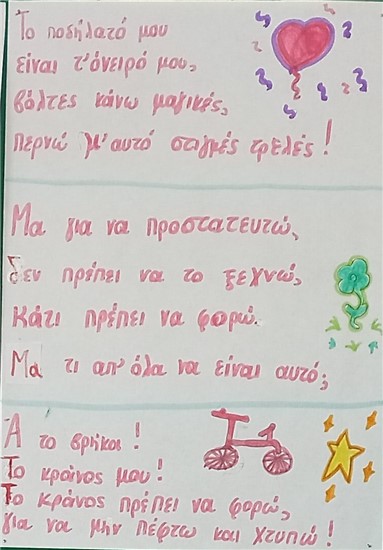 Το ποδήλατό μου
είναι τ'όνειρό μου,
βόλτες κάνω μαγικές,
περνώ μ'αυτό στιγμές τρελές!
Μα για να προστατευτώ,
δεν πρέπει να το ξεχνώ,
Κάτι πρέπει να φορώ.
Μα τι απ'όλα να είναι αυτό;
Α το βρήκα!
Το κράνος μου!
Το κράνος πρέπει να φορώ,
για να μην πέφτω και χτυπώ!